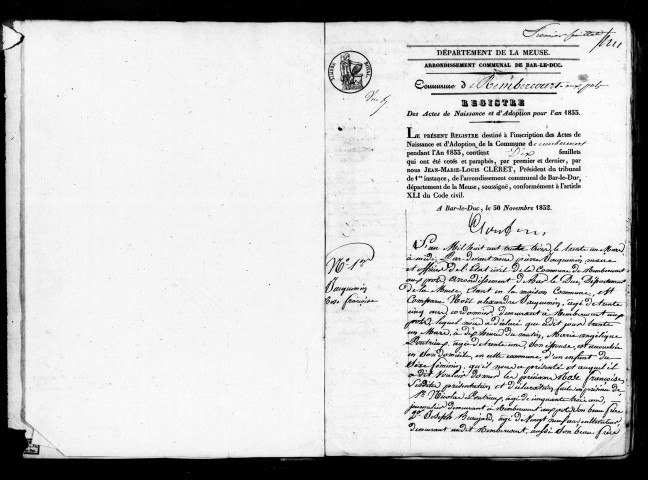 Premier feuillet
DÉPARTEMENT DE LA MEUSE.
ARRONDISSEMENT COMMUNAL DE BAR-LE-DUC.
Commune d e Rembercourt aux pots
REGISTRE
Des Actes de Naissance et d'Adoption pour l'an 1833.
LE PRÉSENT REGISTRE destiné à l'inscription des Actes de
Naissance et d'Adoption de la Commune de Rembercourt
pendant l'An 1833, contient Dix feuillets
qui ont été cotés et paraphés, par premier et dernier, par
nous JEAN-MARIE-LOUIS CLÉRET, Président du tribunal
de 1re instance, de l'arrondissement communal de Bar-le-Duc,
département de la Meuse, soussigné, conformément à l'article
XLI du Code civil.
A Bar-le-Duc, le 30 Novembre 1832.
N° 1er
Vauquemin
Rose françoise
L'an Mil huit cent trente trois, le trente un Mars
à midi, Par devant nous pierre Vauquemin maire
et officier de l'état civil de la Commune de Rembercourt
aux pots, arrondissement de Bar le Duc, Département
de la Meuse, Étant en la maison Commune, Est
Comparu Noël alexandre Vauquemin, agé de trente
cinq ans cordonnier, demeurant à Rembercourt aux
pots, lequel nous a déclaré que cejourd'hui trente
un Mars, à dix heures du matin, Marie angélique
agée de trente un, Son épouse, est accouchée
en Son domicile en cette commune, d'un enfant du
Sexe féminin, qu'il nous a présenté et auquel il
a dit vouloir donner les prénoms de Rose françoise,
lesdites présentation et déclaration faites en présence de
1° Nicolas agé de cinquante trois ans,
demeurant à Rembercourt aux pots Son beau frère
2° Joseph agé de Vingt neuf ans cultivateur,
demeurant audit Rembercourt, aussi Son beau frère